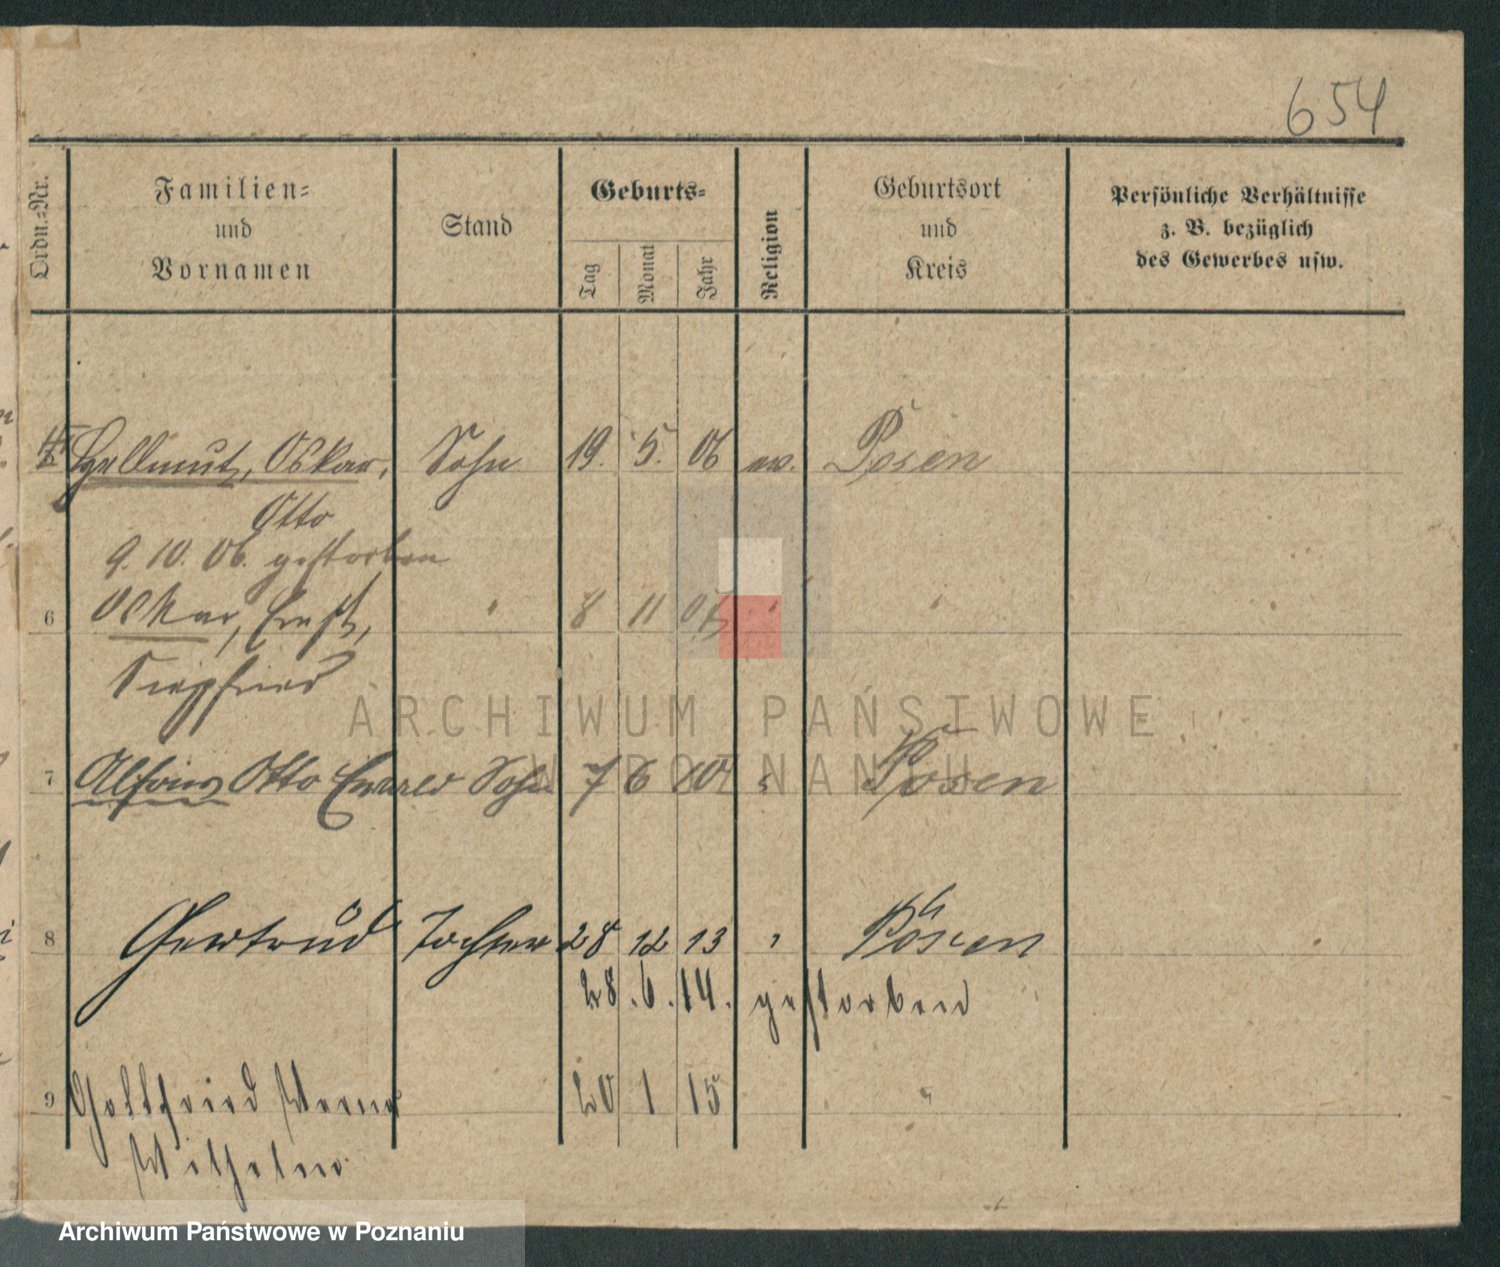 654
Ordn.-Nr.
Familien-
und
Vornamen
Stand
Geburts-
Tag
Monat
Jahr
Religion
Geburtsort
und
Kreis
Persönliche Verhältnisse
z. B. bezüglich
des Gewerbes usw.
Hellmut, Oskar, Sohn 19. 5. 06 ev. Posen
Otto
9. 10. 06. gestorben
6 Oskar, Ernst, " 8 11 07 " "
Siegfried
ARCHIWUM PAŃSTWOWE
W POZNANIU
7 Alfons Otto Ewald Sohn 7 6 10 " Posen
8 Gertrud Tochter 28 12 13 " Posen
28. 6. 14. gestorben
9 Gottfried Werner 20 1 15 "
Wilhelm
Archiwum Państwowe w Poznaniu